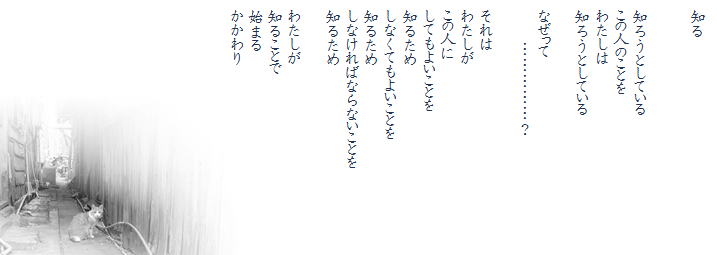 知る
知ろうとしている
この人のことを
わたしは
知ろうとしている
なぜって
……………？
それは
わたしが
この人に
してもよいことを
知るため
しなくてもよいことを
知るため
しなければならないことを
知るため
わたしが
知ることで
始まる
かかわり